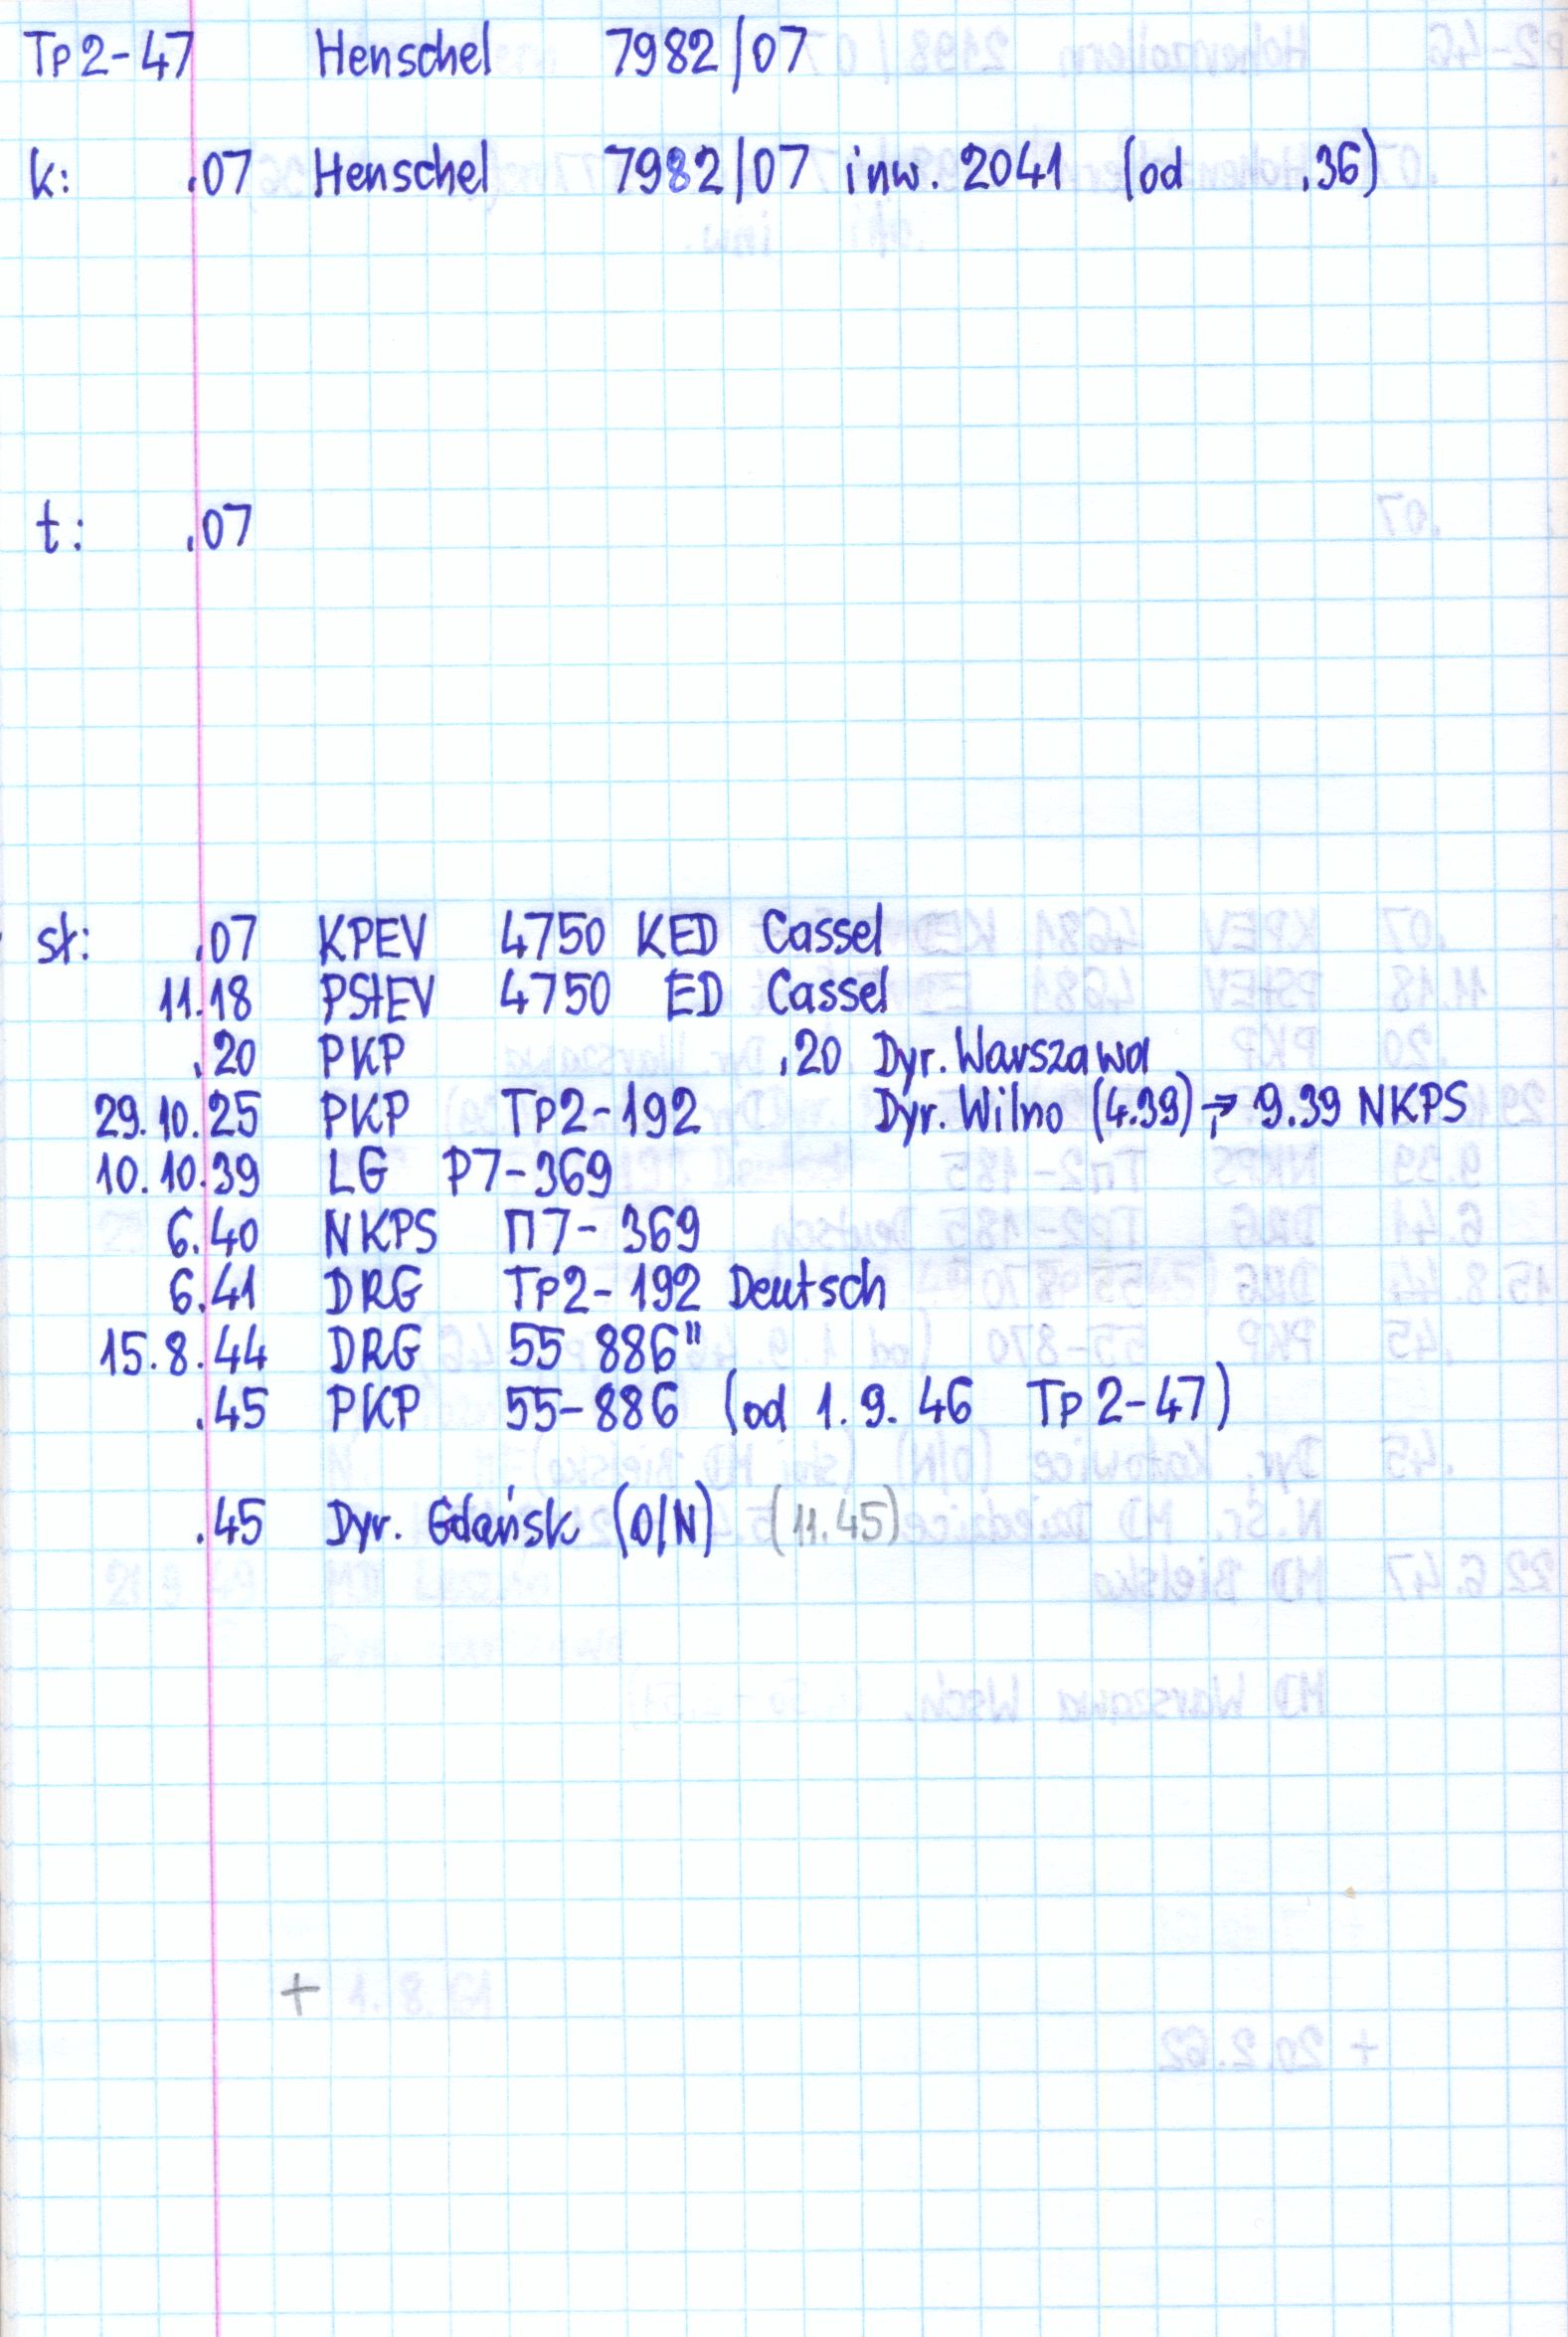 Tp2-47 Henschel 7982/07
k: .07 Henschel 7982/07 inw. 2041 (od .36)
t: .07
st: .07 KPEV 4750 KED Cassel
11.18 PStEV 4750 ED Cassel
.20 PKP .20 Dyr. Warszawa
29.10.25 PKP Tp2-192 Dyr. Wilno (4.39) → 9.39 NKPS
10.10.39 LG P7-369
6.40 NKPS П7-369
6.41 DRG Tp2-192 Deutsch
15.8.44 DRG 55 886"
.45 PKP 55-886 (od 1.9.46 Tp2-47)
.45 Dyr. Gdańsk (O/N) (11.45)
+